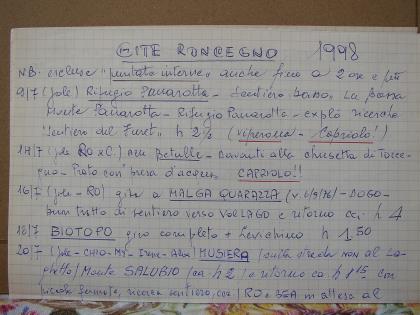 GITE RONCEGNO 1998
NB. escluse "puntate interne" anche fino a 2 ore e più
9/7 (Jole) Rifugio Panarotta - Sentiero basso. La bassa
Panarotta - Rifugio Panarotta - explò ricerche
"Sentiero dei h 2½ (viperotta - Capriolo!)
(Jole RO x C.) alle Betulle - davanti alla chiesetta di Torce-
gno - Prato con presa d'acqua. CAPRIOLO!!
16/7 (Jole - RO) giro a MALGA QUARAZZA (v. 6/9/76) - DOGO-
un tratto di sentiero verso VOLLAGO e ritorno ca. h 4
18/7 BIOTOPO giro completo + Levicino h 1 50
20/7 (Jole - CHIO - MY - Irene - Alba) MUSIERA / salita strada non al La-
ghetto / Monte SALUBIO / ca h 2 / e ritorno ca. h 1 15 con
piccola fermata, ricerca sentiero, ecc / RO e in attesa al